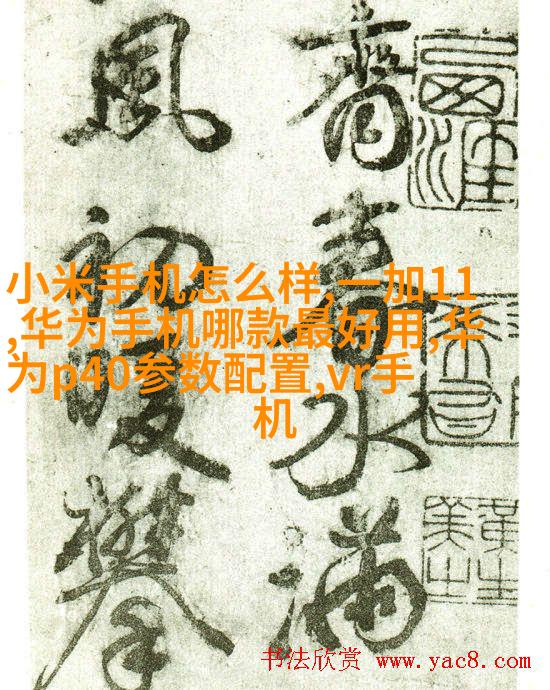 齋春水滿
風初暖攀
小米手机怎么样,一加11
,华为手机哪款最好用,华
为p40参数配置,vr手
机
书法欣赏 www.yac8.com